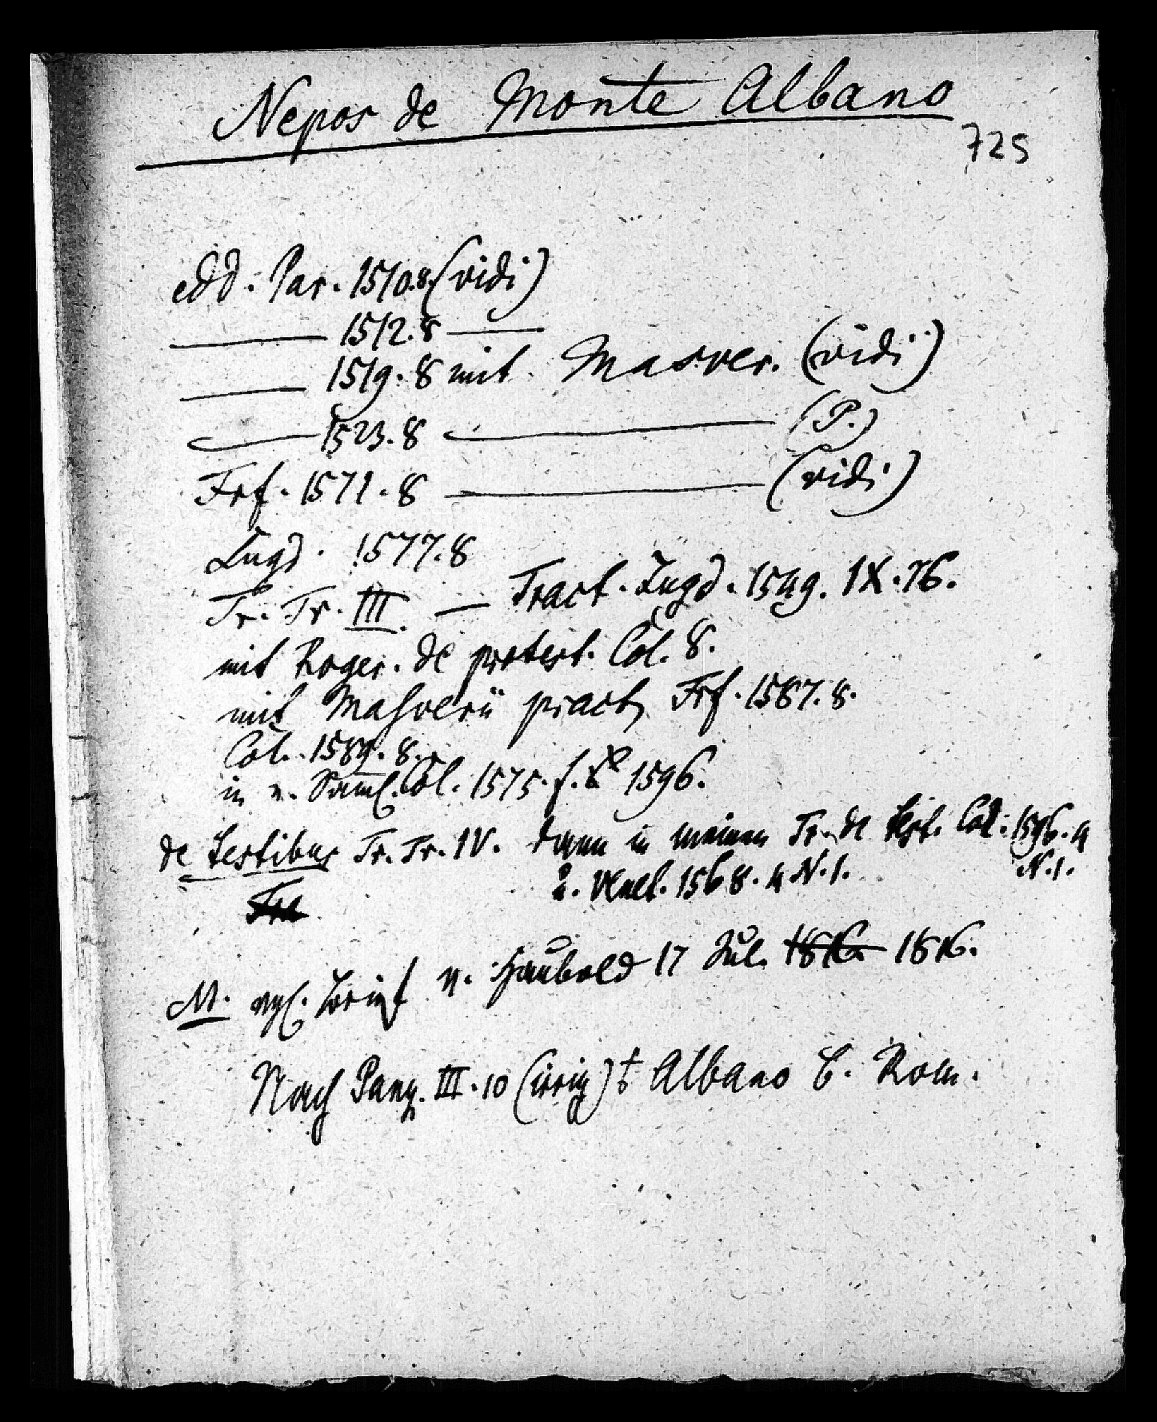 Nepos de Monte Albano
725
edd. Par. 1510.8. (vidi)
——— 1512.8 ———
——— 1519. 8 mit Masver. (vidi)
——— 1523. 8 ——— (P.)
Frf. 1571. 8 ——— (vidi)
Lugd. 1577. 8
Tr. Tr. III. — Tract. Lugd. 1549. IX. 76.
mit Roger. de protest. Col. 8.
mit Masverii pract. Frf. 1587. 8.
Col. 1589. 8.
in e. Samml. Col. 1575. f. 8 1596.
de testibus Tr. Tr. IV. dann in meinen Tr. de test. Col. 1596. 4
N. 1.
2. Venet. 1568. 4 N. 1.
M. vgl. Brief v. Haubold 17 Jul. 1816. 1816.
Nach Panz. III. 10 (irrig) † Albano b. Rom.